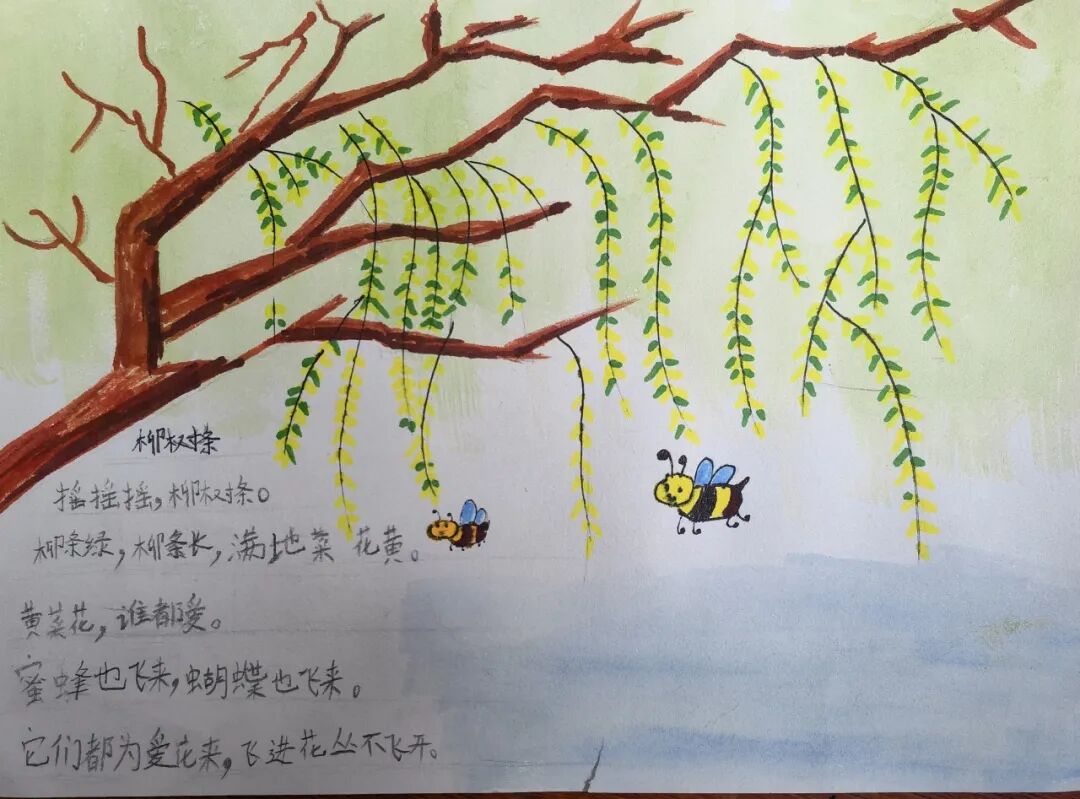 柳权条
摇摇摇，柳权条。
柳条绿，柳条长，满地菜花黄。
黄菜花，谁都爱。
蜜蜂也飞来，蝴蝶也飞来。
它们都为爱花来，飞进花丛不飞开。